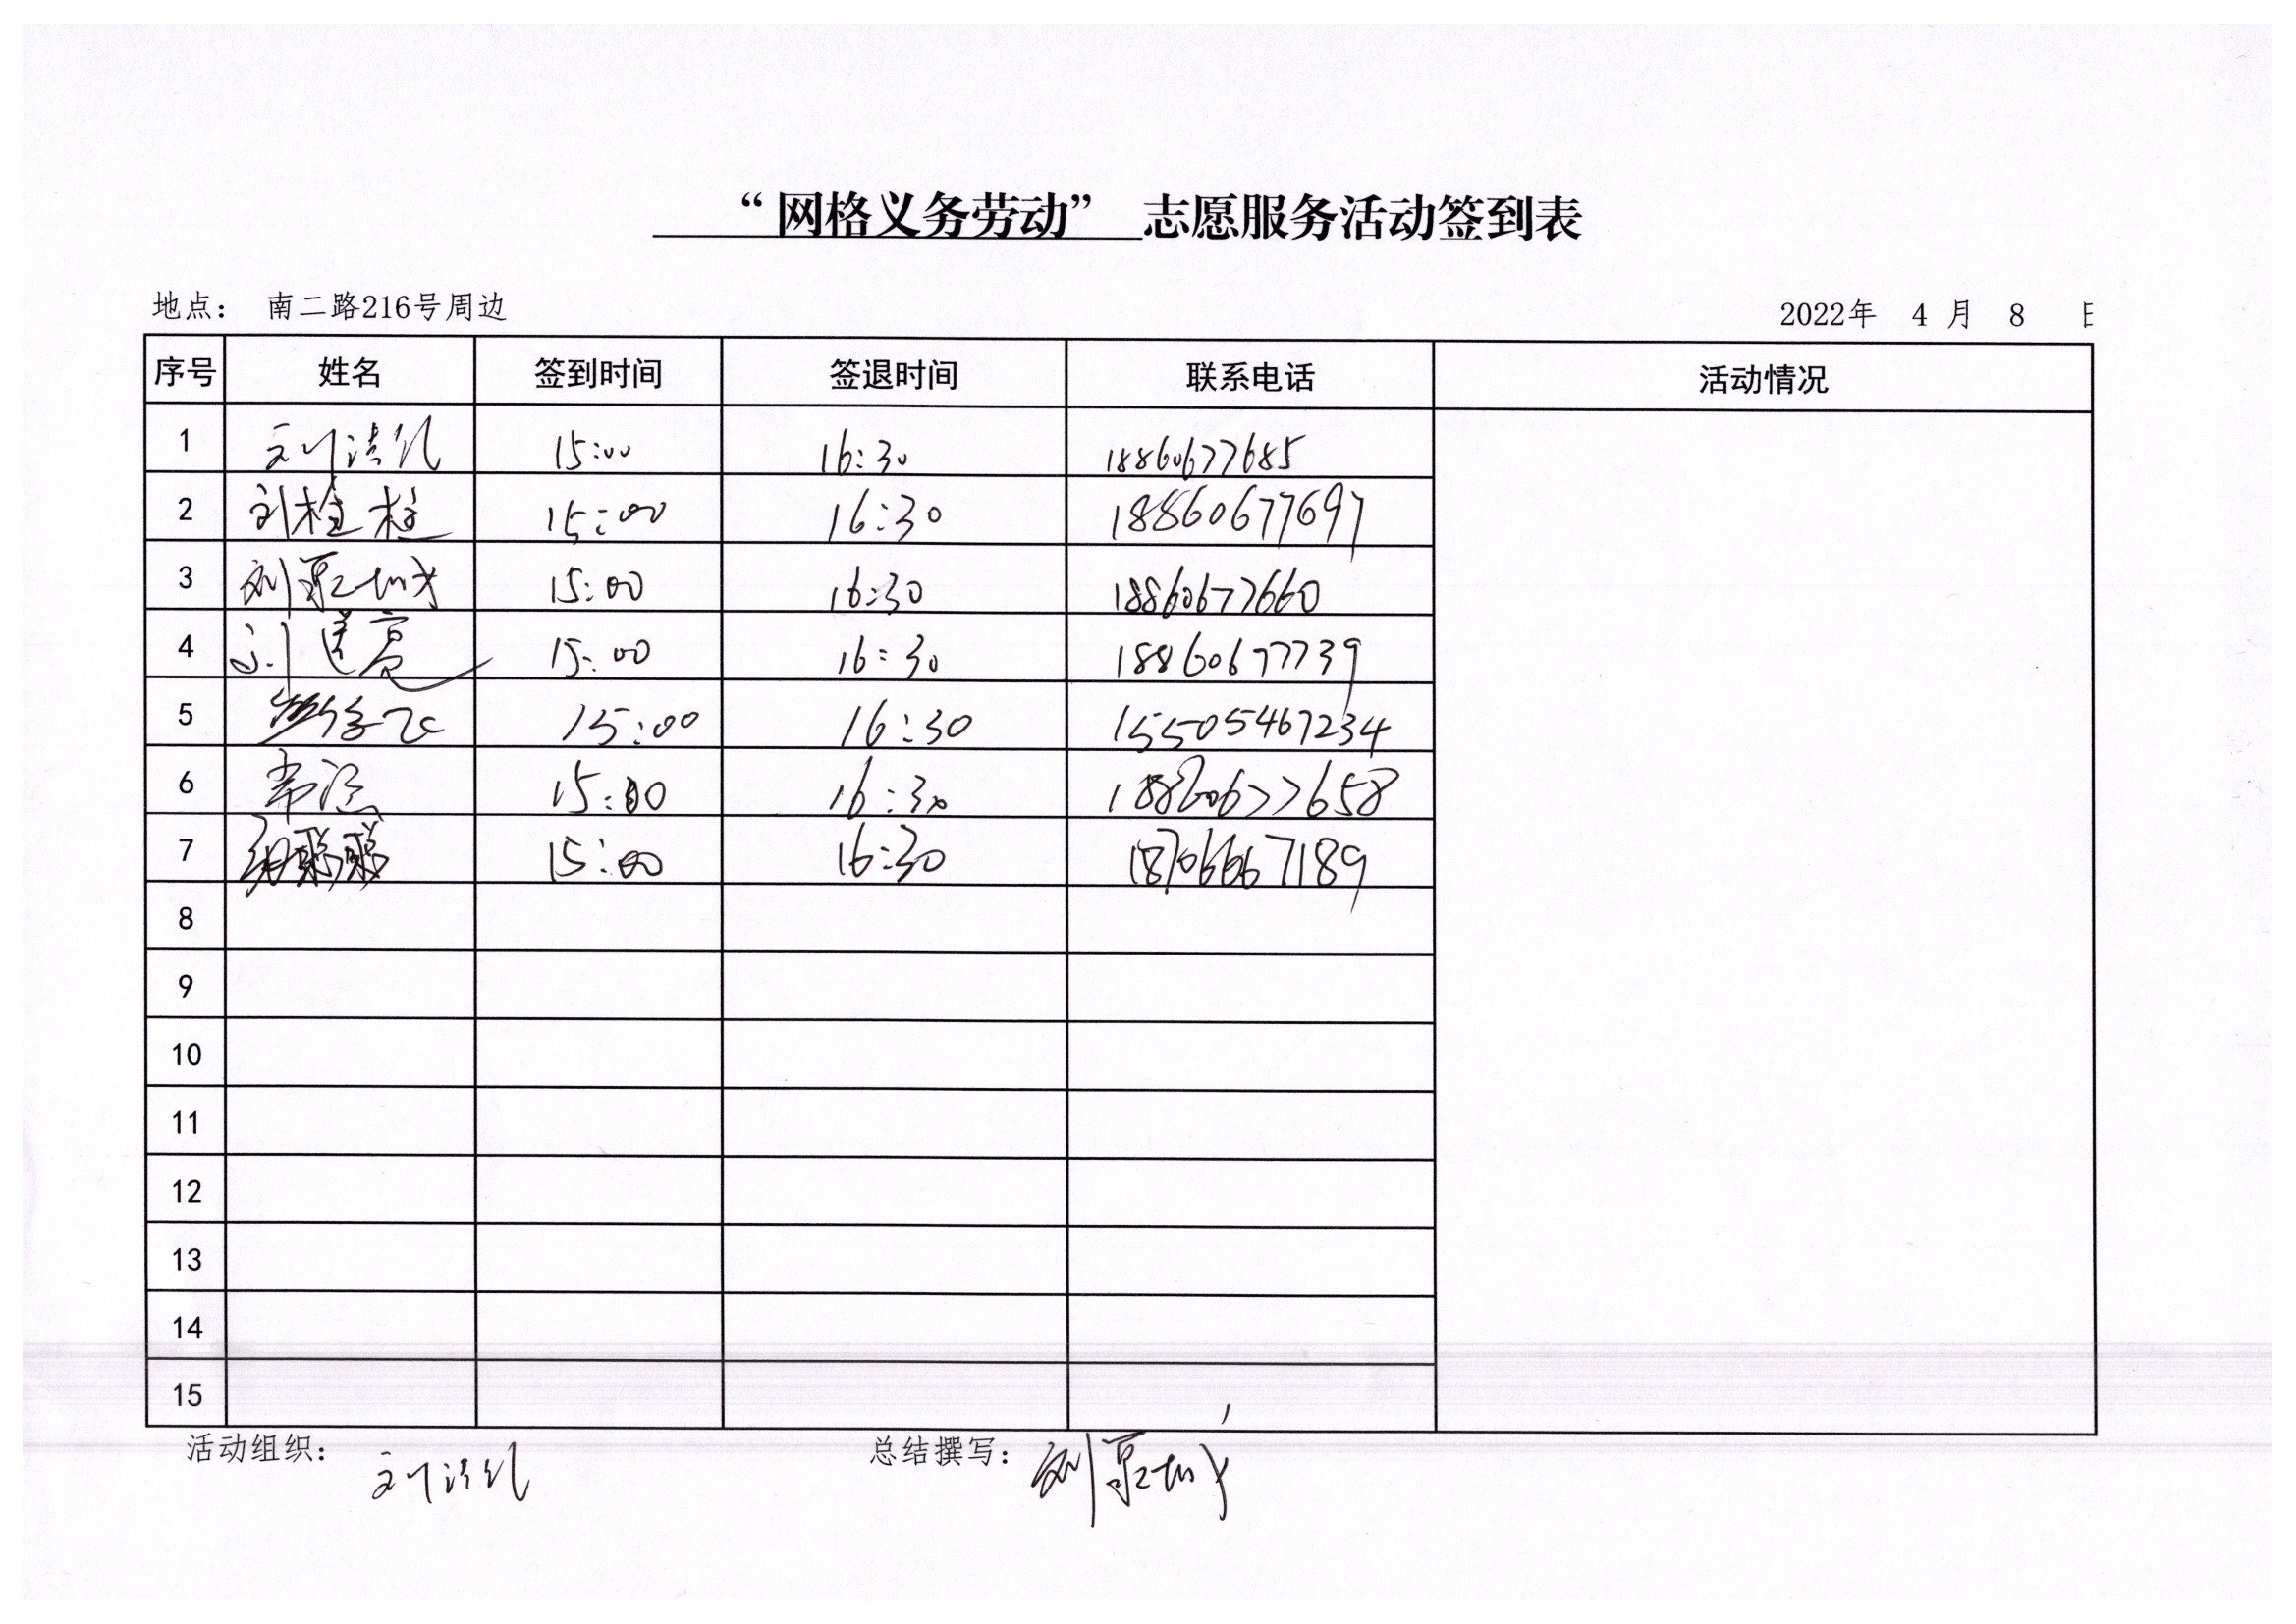 “网格义务劳动” 志愿服务活动签到表
地点： 南二路216号周边 2022年 4 月 8 日
序号 姓名 签到时间 签退时间 联系电话 活动情况
1 15:00 16:30 18860677685
2 刘柱柱 15:00 16:30 18860677697
3 15:00 16:30 18860677660
4 15:00 16:30 18860677739
5 15:00 16:30 15505467234
6 15:00 16:30 18860677658
7 聪聪 15:00 16:30 18706667189
8
9
10
11
12
13
14
15
活动组织： 总结撰写：